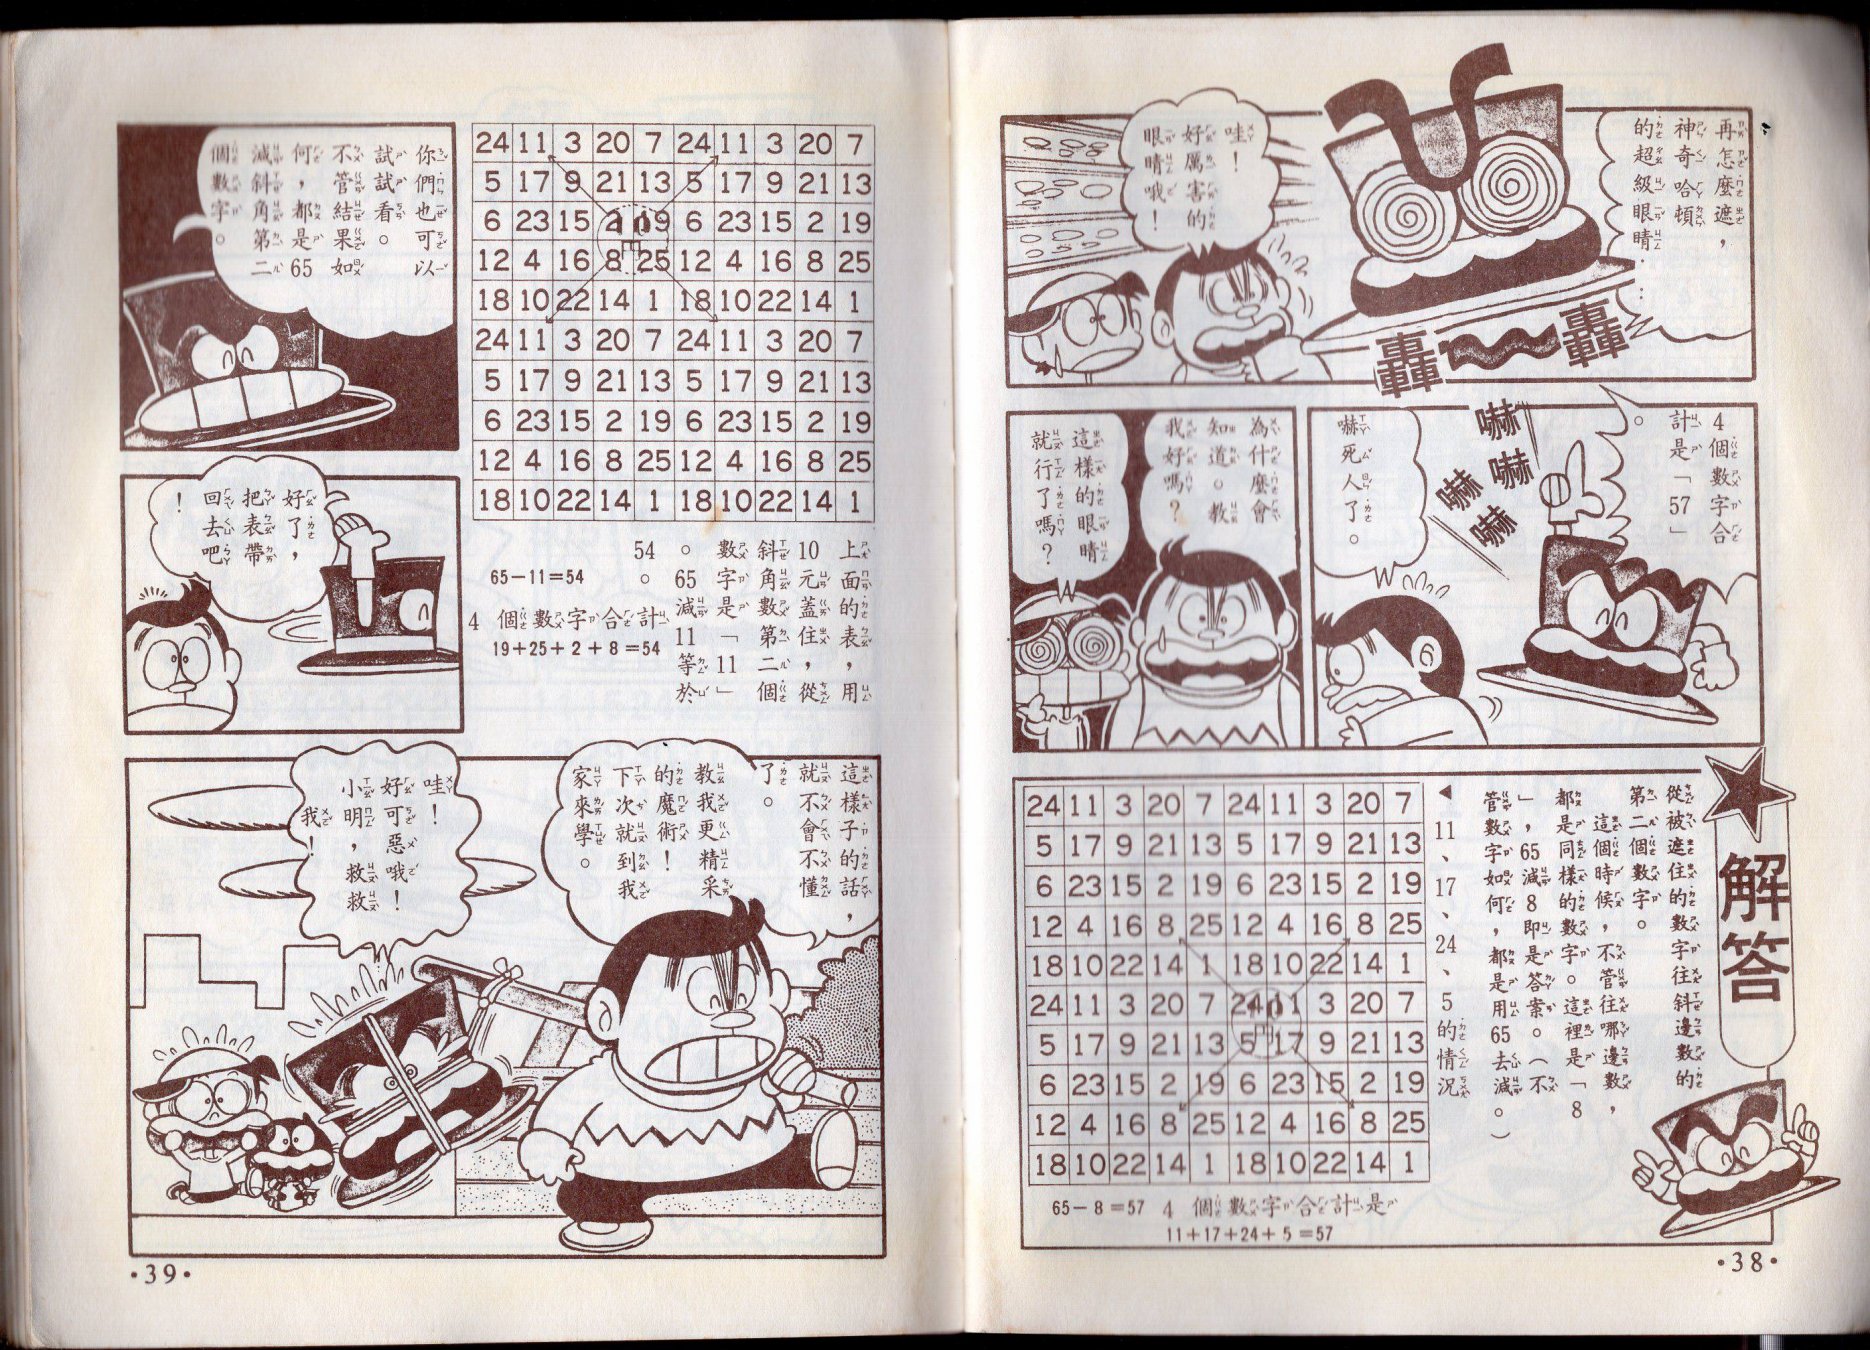 再怎麼遮，
神奇哈頓
的超級眼晴．．．
哇！
好厲害的
眼晴哦！
轟～～轟
4個數字合
計是「57」
。
嚇嚇嚇嚇
嚇死人了。
為什麼會
知道。教
我好嗎？
這樣的眼晴
就行了嗎？
解答
從被遮住的數字往斜邊數的
第二個數字。
這個時候，不管往哪邊數，
都是同樣的數字。這裡是「8
」，65減8即是答案。（不
管數字如何，都是用65去減。）
◀11、17、24、5的情況
24 11 3 20 7 24 11 3 20 7
5 17 9 21 13 5 17 9 21 13
6 23 15 2 19 6 23 15 2 19
12 4 16 8 25 12 4 16 8 25
18 10 22 14 1 18 10 22 14 1
24 11 3 20 7 24 11 3 20 7
5 17 9 21 13 5 17 9 21 13
6 23 15 2 19 6 23 15 2 19
12 4 16 8 25 12 4 16 8 25
18 10 22 14 1 18 10 22 14 1
65－8＝57 4個數字合計是
11＋17＋24＋5＝57
·38·
24 11 3 20 7 24 11 3 20 7
5 17 9 21 13 5 17 9 21 13
6 23 15 2 19 6 23 15 2 19
12 4 16 8 25 12 4 16 8 25
18 10 22 14 1 18 10 22 14 1
24 11 3 20 7 24 11 3 20 7
5 17 9 21 13 5 17 9 21 13
6 23 15 2 19 6 23 15 2 19
12 4 16 8 25 12 4 16 8 25
18 10 22 14 1 18 10 22 14 1
上面的表，用
10元蓋住，從
斜角數第二個
數字是「11」
。65減11等於
54。
65－11＝54
4個數字合計
19＋25＋2＋8＝54
你們也可以
試試看。
不管結果如
何，都是65
減斜角第二
個數字。
好了，
把表帶
回去吧
！
這樣子的話，
就不會不懂
了。
教我更精采
的魔術！
下次就到我
家來學。
哇！
好可惡哦！
小明，救救
我！
·39·